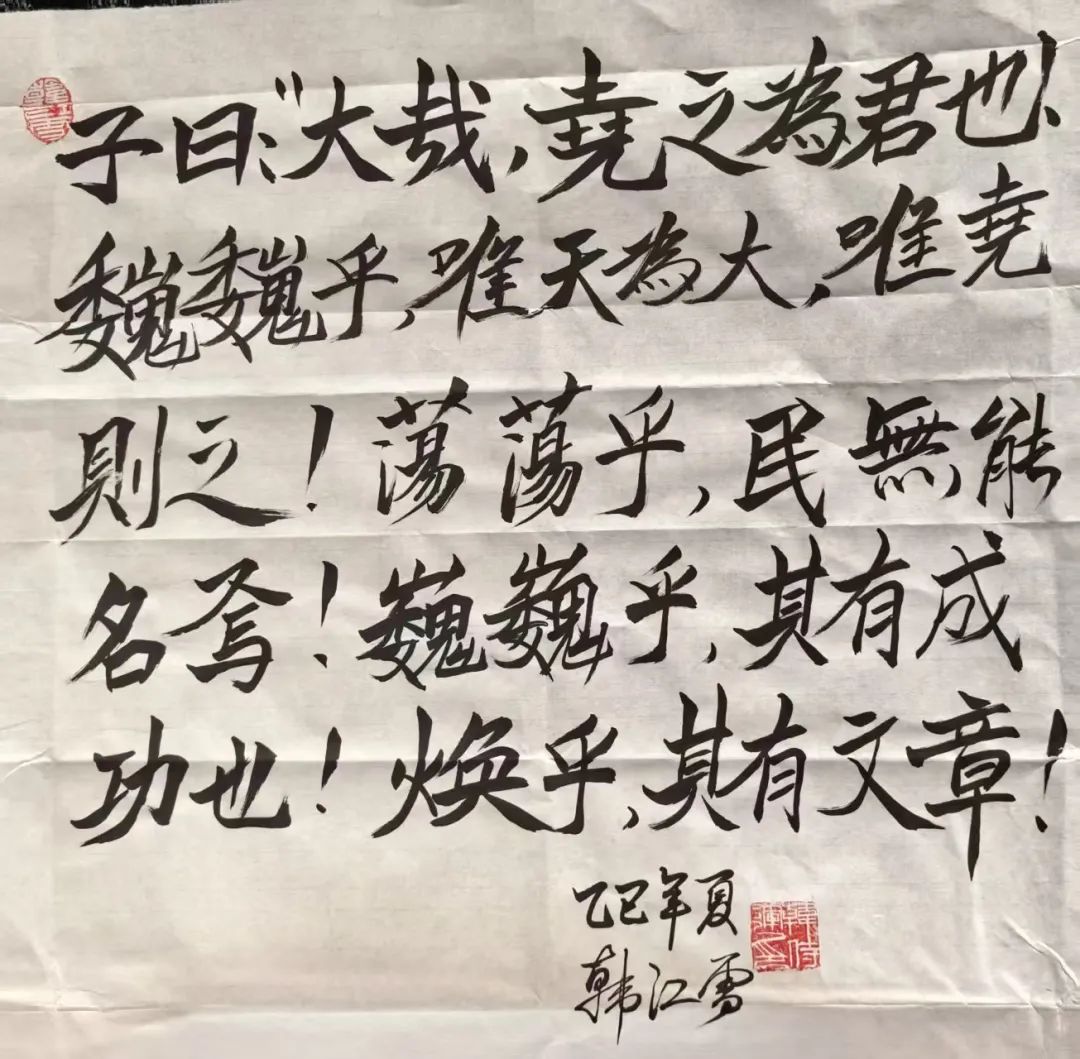 子曰:"大哉,堯之為君也!
巍巍乎,唯天為大,唯堯
則之!蕩蕩乎,民無能
名焉!巍巍乎,其有成
功也!焕乎,其有文章!
乙巳年夏
韩江雪